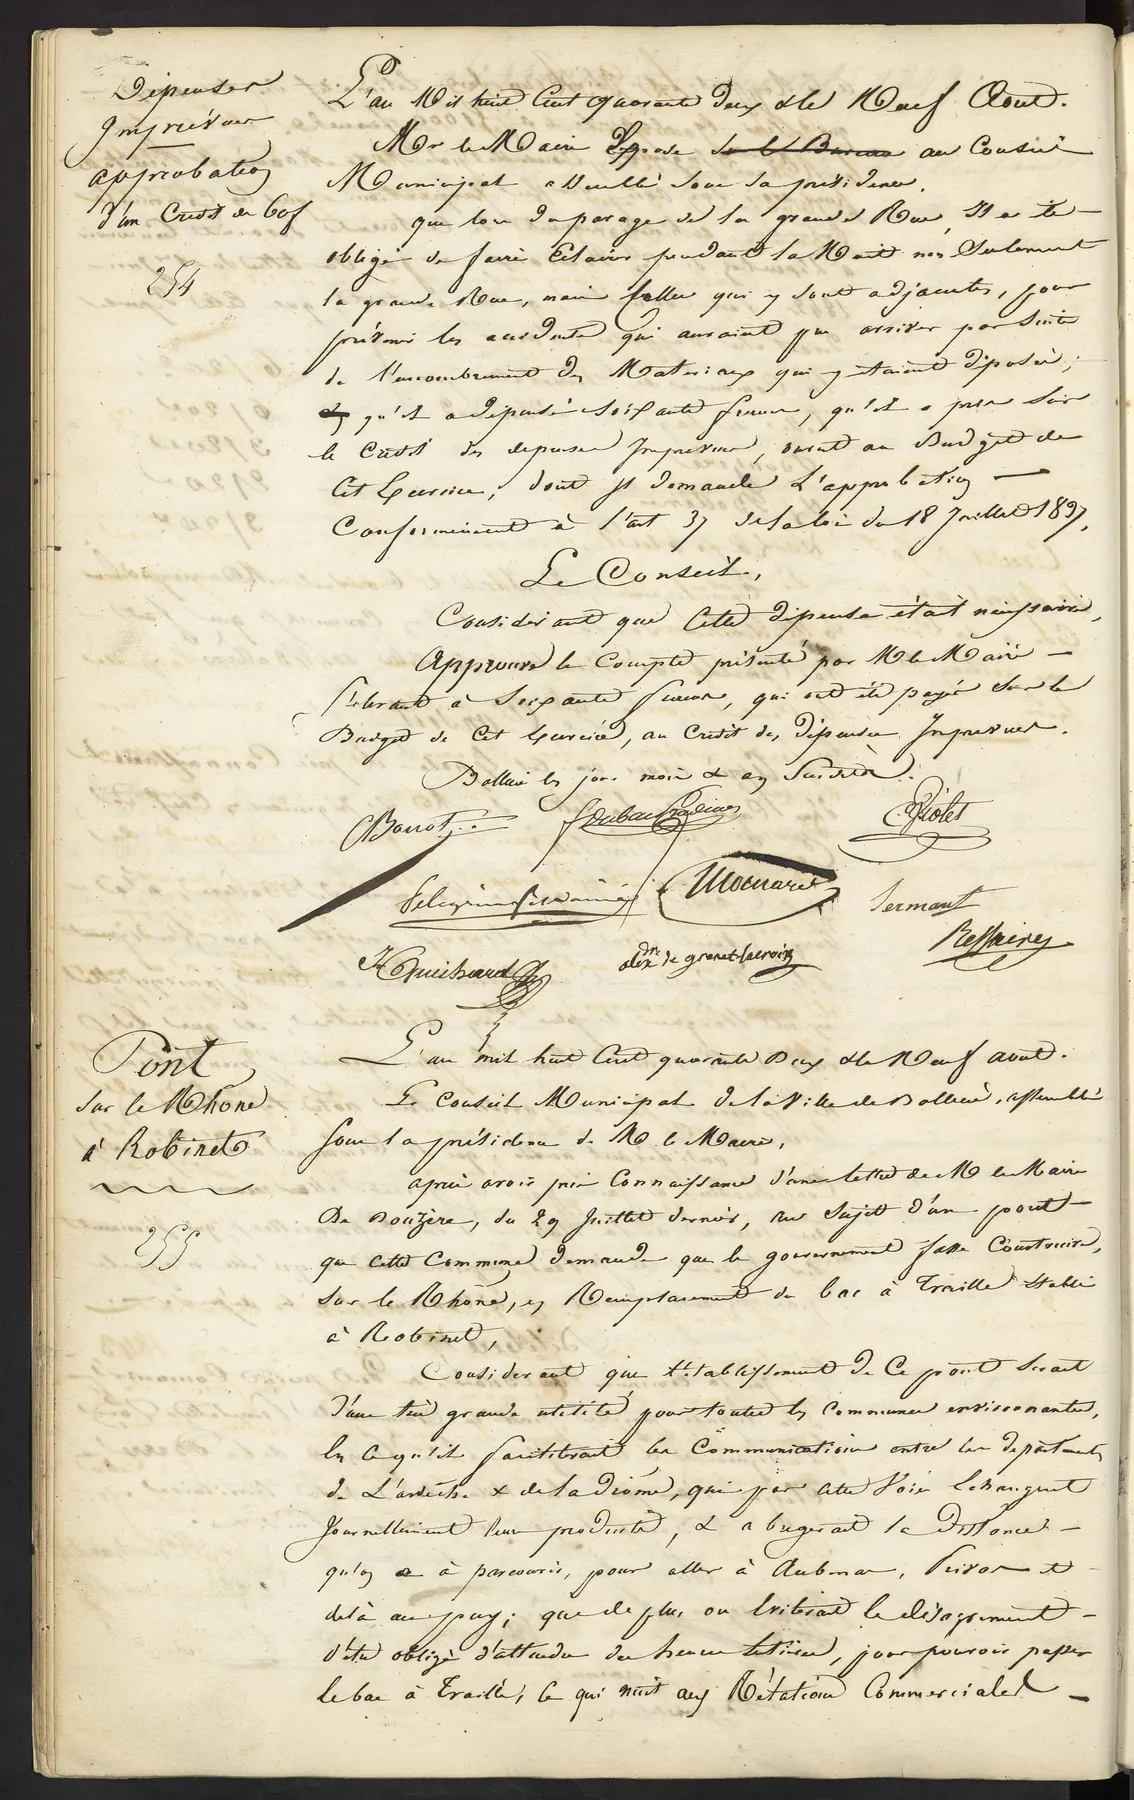 Dépenses
Imprévues
approbation
d'un Credit de 60f
254
L'an Mil huit Cent quarante Deux & le Neuf Aout.
Mr le Maire Expose sur le Bureau au Conseil
Municipal assemblé sous sa présidence,
que lors du pavage de la grande Rue, Il a été
obligé de faire Eclairer pendant la Nuit non Seulement
la grande Rue, mais celles qui y sont adjacentes, pour
prévenir les accidents qui auraient pu arriver par Suite
de l'encombrement des Materiaux qui y étaient déposés;
qu'il a dépensé soixante francs, qu'il a pris Sur
le Credit des depenses Imprevues, ouvert au Budget de
Cet Exercice, dont Il demande L'approbation
Conformément à l'art 37 de la loi du 18 Juillet 1837,
Le Conseil,
Considerant que Cette dépense était nécessaire,
Approuve le Compte présenté par M le Maire
S'élevant à Soixante francs, qui ont été payés Sur le
Budget de Cet Exercice, au Credit des Dépenses Imprevues.
Bollène les jour mois & an Susdits.
CBorrot
Violet
Mocnaret
Sermant
Guichard
alexdre de granet-lacroix
Ressaire
Pont
sur le Rhône
à Robinet
255
L'an mil huit Cent quarante Deux & le Neuf aout.
Le Conseil Municipal de la Ville de Bollène, assemblé
sous la présidence de M le Maire,
après avoir pris Connaissance d'une lettre de M le Maire
De Donzère, du 29 Juillet dernier, au Sujet d'un pont
que cette Commune demande que le gouvernement fasse Construire,
sur le Rhône, en Remplacement du bac à Traille établi
à Robinet,
Considerant que l'établissement de Ce pont serait
d'une très grande utilité pour toutes les Communes environnantes,
En ce qu'il faciliterait les Communications entre les departements
de L'ardèche & de la Drôme, qui par cette Voie Echangent
Journellement leurs produits, & abregerait la Distance
qu'on a à parcourir, pour aller à Aubenas, Privas et
delà au puy; que de plus on Eviterait le désagrement
d'être obligé d'attendre des heures entières, pour pouvoir passer
le bac à Traille, Ce qui nuit aux Rélations Commerciales